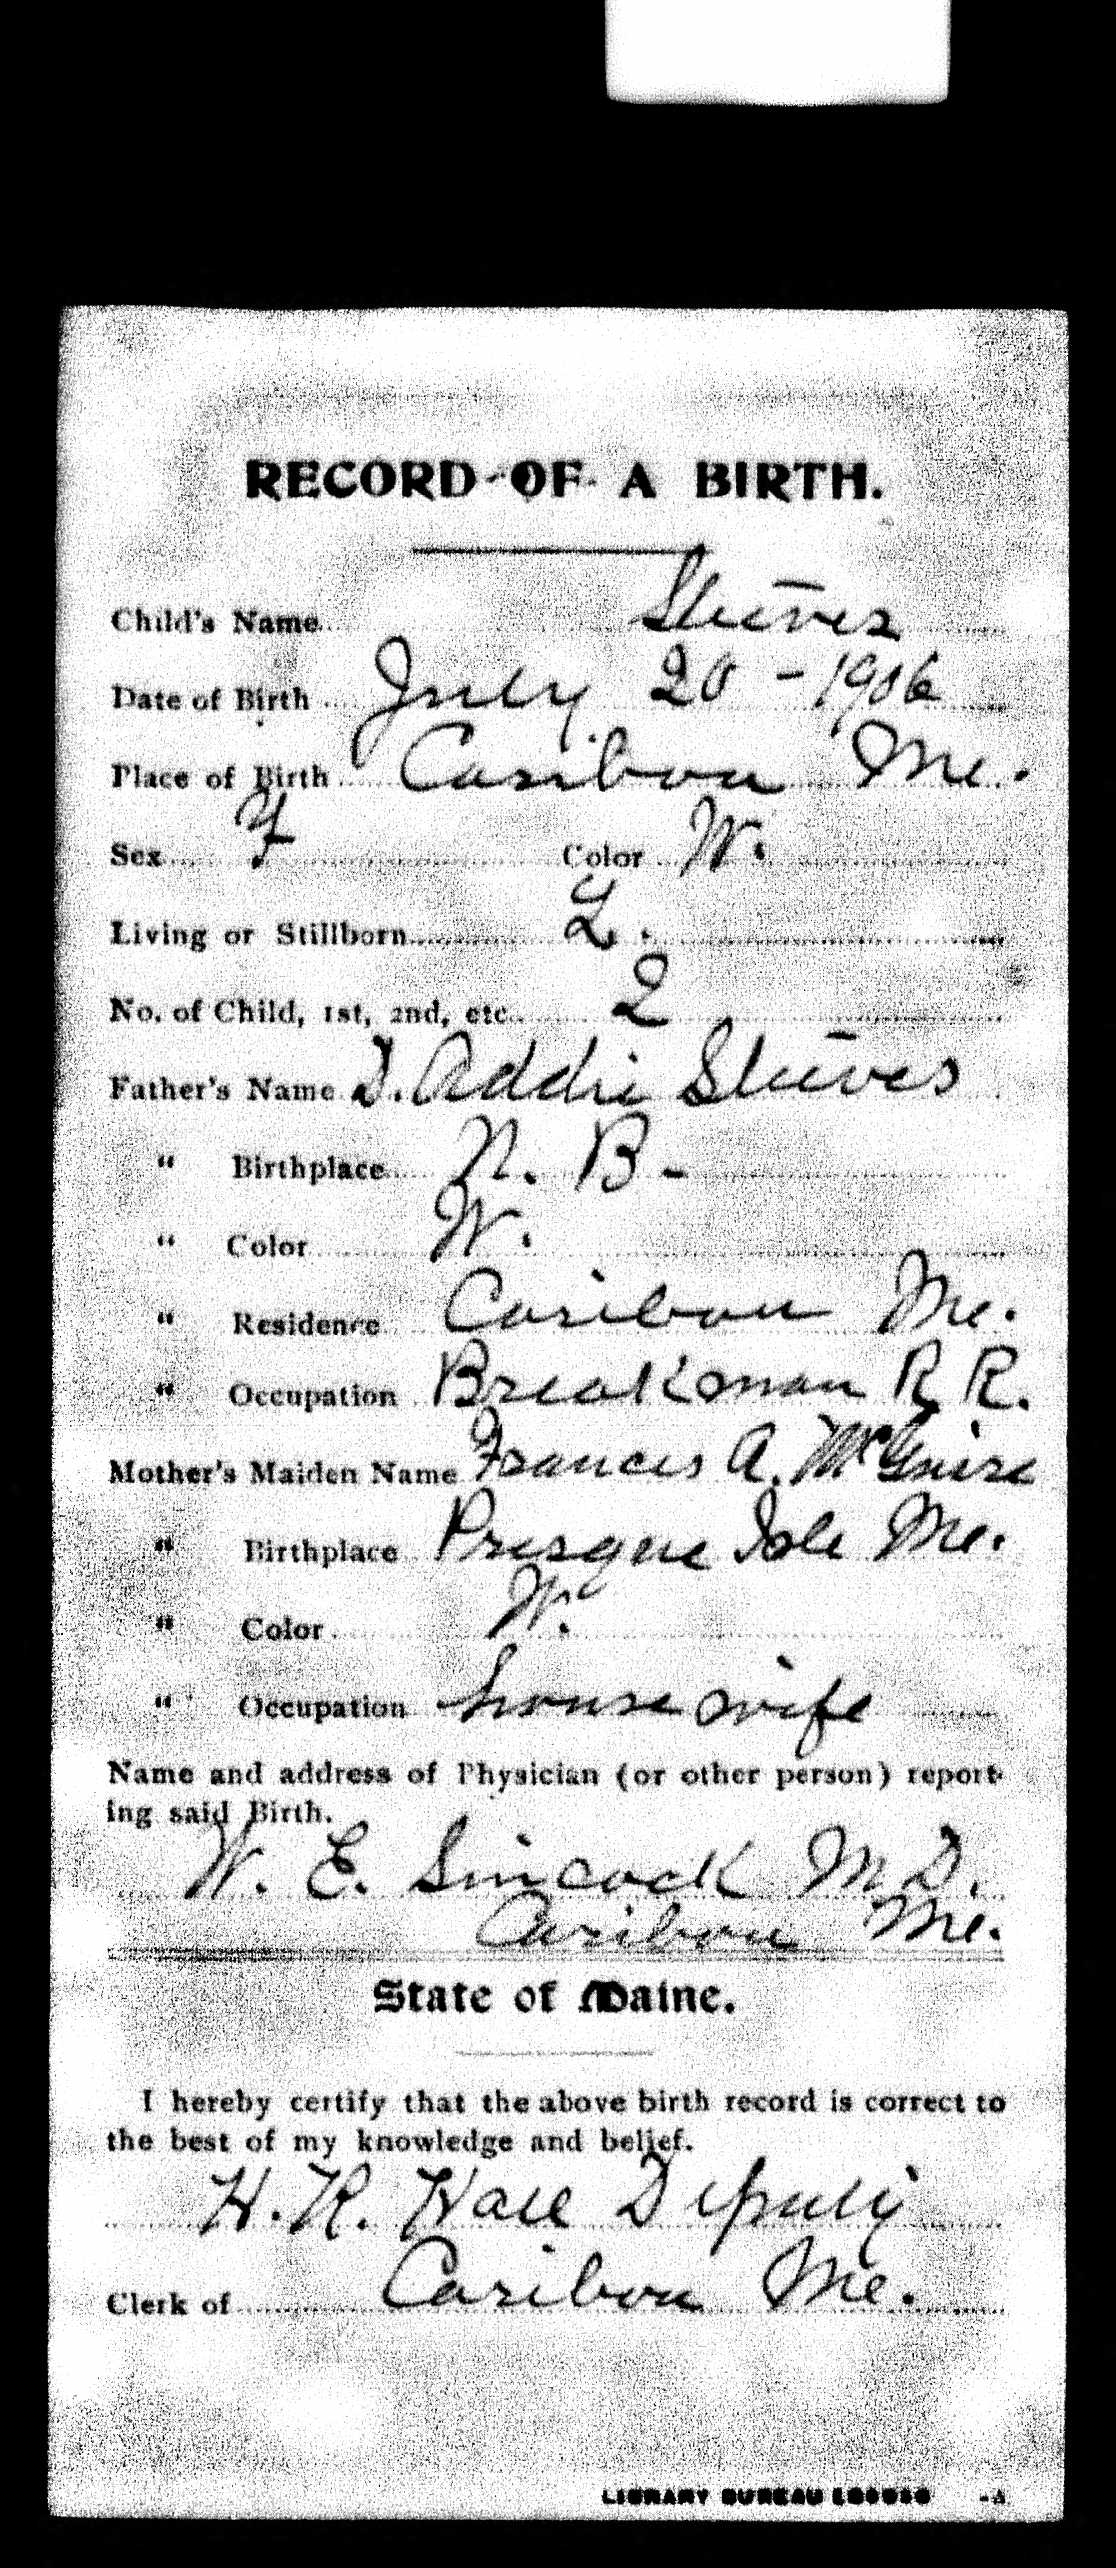 RECORD OF A BIRTH.
Child's Name Steeves
Date of Birth July 20 - 1906
Place of Birth Caribou Me.
Sex F Color W.
Living or Stillborn L.
No. of Child, 1st, 2nd, etc. 2
Father's Name D. Addie Steeves
" Birthplace N. B -
" Color W.
" Residence Caribou Me.
" Occupation Breakman R R.
Mother's Maiden Name Frances A. McGuire
" Birthplace Presque Isle Me.
" Color W.
" Occupation housewife
Name and address of Physician (or other person) report-
ing said Birth.
W. E. Sincock M D.
Caribou Me.
State of Maine.
I hereby certify that the above birth record is correct to
the best of my knowledge and belief.
H. R. Hall Deputy
Clerk of Caribou Me.
LIBRARY BUREAU